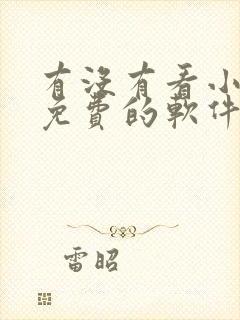 有没有看小
免費的軟件
雷昭